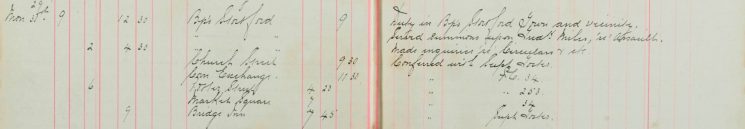 29
Mon 30th. 9 12 30 Bp's Stortford 9 Duty in Bp's Stortford Town and vicinity.
" " Served summons upon Fredk. Miles, re Assault.
2 4 30 " " Made inquiries re Circulars &c
Church Street 9 30 Conferred with Supt
Corn Exchange 11 30 " P.C. 34.
6 Street 4 23 " " 253.
Market Square 7 " 34
9 Bridge Inn 7 45 " Supt